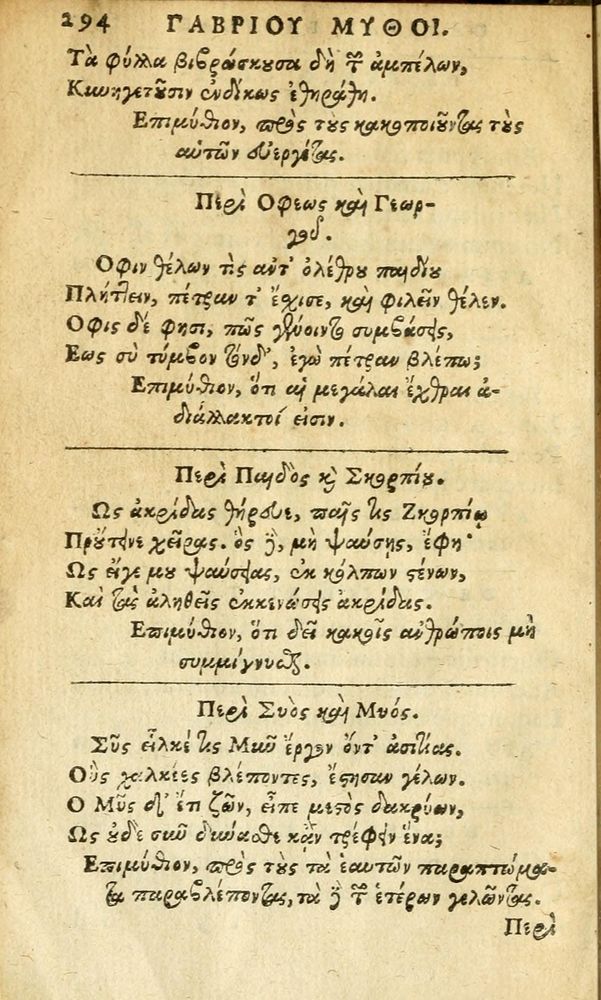 294 ΓΑΒΡΙΟΥ ΜΥΘΟΙ.
Τὰ φύλλα βιβράσκουσα δὴ τῶν ἀμπέλων,
Κυνηγετοῦσιν ἐνδίκως ἐθηράθη.
Επιμύθιον, πρὸς τοὺς κακοποιοῦντας τοὺς
αὐτῶν εὐεργέτας.
Περὶ Οφεως καὶ Γεωρ-
γοῦ.
Οφιν θέλων τὶς ἀντ' ὀλέθρου παιδίου
Πλήττειν, πέτραν τ' ἔσχισε, καὶ φιλεῖν θέλεν.
Οφις δέ φησι, πῶς γένοιντο συμβάσεις,
Εως σὺ τύμβον τόνδ', ἐγὼ πέτραν βλέπω;
Επιμύθιον, ὅτι αἱ μεγάλαι ἔχθραι ἀ-
διάλλακτοί εἰσιν.
Περὶ Παιδὸς καὶ Σκορπίου.
Ως ἀκρίδας θήρευε, παῖς τις Ζκορπίῳ
Προὔτεινε χεῖρας. ὃς δὲ, μὴ ψαύσῃς, ἔφη·
Ως εἴγε μου ψαύσειας, ἐκ κόλπων στένων,
Καὶ τὰς ἀληθεῖς ἐκκενώσεις ἀκρίδας.
Επιμύθιον, ὅτι δεῖ κακοῖς ἀνθρώποις μὴ
συμμίγνυσθαι.
Περὶ Συὸς καὶ Μυός.
Σῦς εἷλκέ τις Μῦν ἔργον ὄντ' ἀσιτίας.
Οὓς χαλκέες βλέποντες, ἔστησαν γέλων.
Ο Μῦς δ' ἔτι ζῶν, εἶπε μεστὸς δακρύων,
Ως οὐδὲ σῦν δύνασθε κἂν τρέφειν ἕνα;
Επιμύθιον, πρὸς τοὺς τὰ ἑαυτῶν παραπτώμα-
τα παραβλέποντας, τὰ δὲ τῶν ἑτέρων γελῶντας.
Περὶ